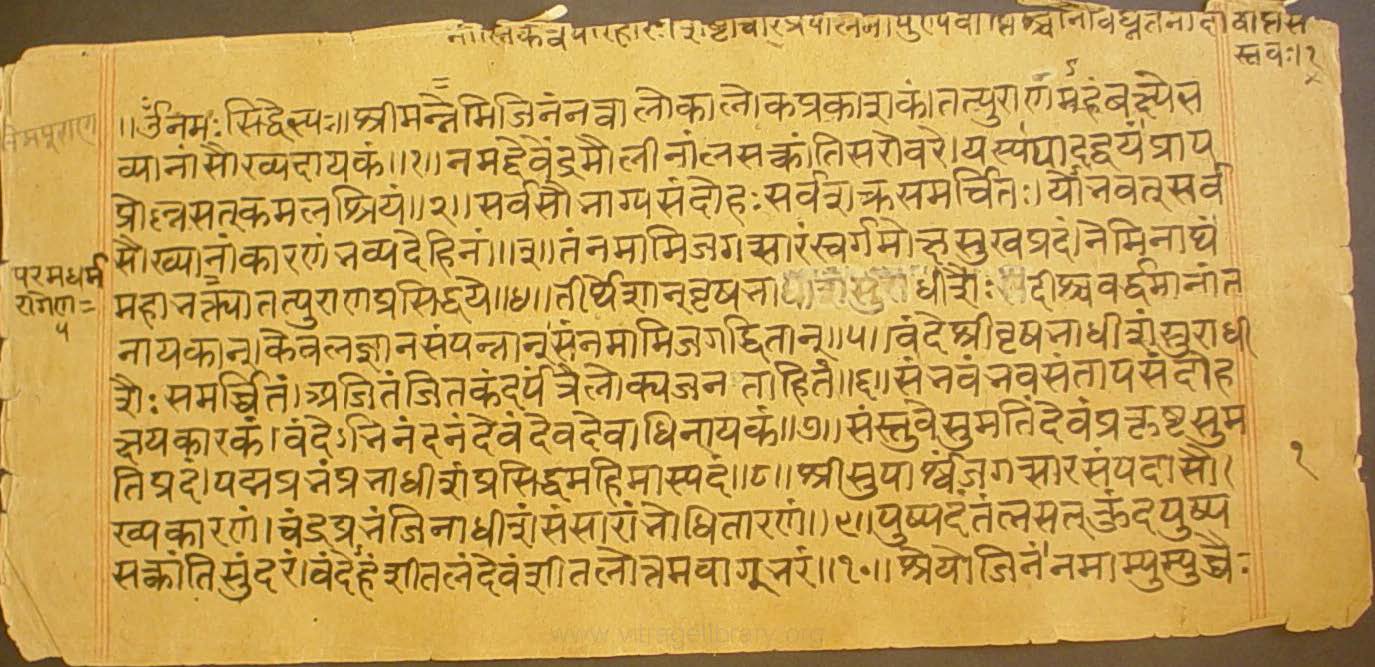 नास्तिकत्वपरिहारः शिष्टाचारप्रपालनं पुण्यवाप्तिश्च निर्विघ्नतनादौ वाप्तसं
स्तवः।१
नेमपुराण
॥ॐनमःसिद्धेभ्यः॥श्रीमन्नेमिजिनंनत्वालोकालोकप्रकाशकं।तत्पुराणमहंवक्ष्येस
व्यानांसौख्यदायकं॥१॥नमद्देवेंद्रमौलीनांलसत्कांतिसरोवरे।यस्यपादद्वयंप्राप
प्रोल्लसत्कमलश्रियं॥२॥सर्वसौभाग्यसंदोहःसर्वशक्रसमर्चितः।योभवत्सर्व
सौख्यानांकारणंभव्यदेहिनां॥३॥तंनमामिजगत्सारंस्वर्गमोक्षसुखप्रदं।नेमिनाथं
परमधर्म
रागेण=
५
महाभक्त्यातत्पुराणप्रसिद्धये॥४॥तीर्थेशान्वृषभाधीशैःदींश्चवर्द्धमानांत
नायकान्।केवलज्ञानसंपन्नान्संनमामिजगद्धितान्॥५॥वंदेश्रीवृषभाधीशंसुराधी
शैःसमर्च्चितं।अजितंजितकंदर्पंत्रैलोक्यजनताहितं॥६॥संभवंभवसंतापसंदोह
क्षयकारकं।वंदेऽभिनंदनंदेवंदेवदेवाधिनायकं॥७॥संस्तुवेसुमतिंदेवंप्रकृष्टसुम
तिप्रदं।पद्मप्रभंप्रभाधीशंप्रसिद्धमहिमास्पदं॥८॥श्रीसुपार्श्वंजगत्सारसंपदासौ।
१
ख्यकारणं।चंद्रप्रभंजिनाधीशंसंसारांभोधितारणं॥९॥पुष्पदंतंलसत्कुंदपुष्प
सत्कांतिसुंदरं।वंदेहंशीतलंदेवंशीतलोत्तमवाग्भरं॥१०॥श्रेयोजिनंनमाम्युच्चैः
www.vitragelibrary.org